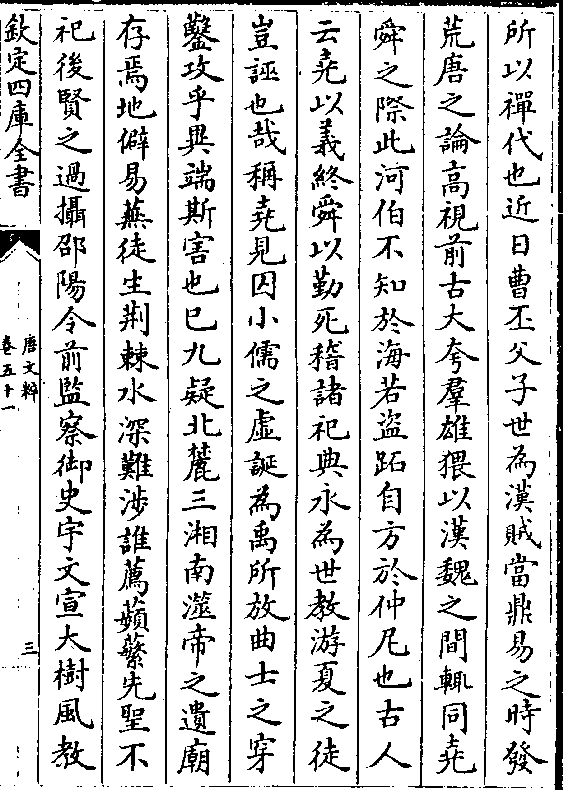 所以禪代也近日曹丕父子世為漢賊當鼎易之時發
荒唐之論高視前古大夸羣雄猥以漢魏之間輒同堯
舜之際此河伯不知於海若盜跖自方於仲尼也古人
云堯以義終舜以勤死稽諸祀典永為世教游夏之徒
豈誣也哉稱堯見囚小儒之虛誕為禹所放曲士之穿
鑿攻乎異端斯害也已九疑北麓三湘南澨帝之遺廟
存焉地僻易蕪徒生荆棘水深難涉誰薦蘋蘩先聖不
祀後賢之過攝邵陽令前監察御史宇文宣大樹風教
欽定四庫全書
唐文粹
卷五十一
三